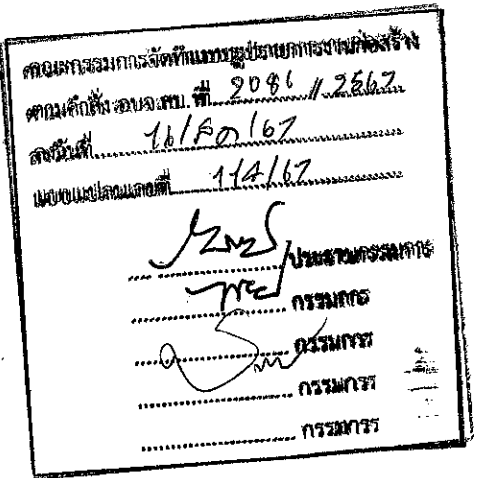 คณะกรรมการจัดทำแบบรูปรายการงานก่อสร้าง
ตามคำสั่ง อบจ.พบ. ที่ 2086 // 2567
ลงวันที่ 16/ส.ค/67
แบบแปลนเลขที่ 114/67
ประธานกรรมการ
กรรมการ
กรรมการ
กรรมการ
กรรมการ